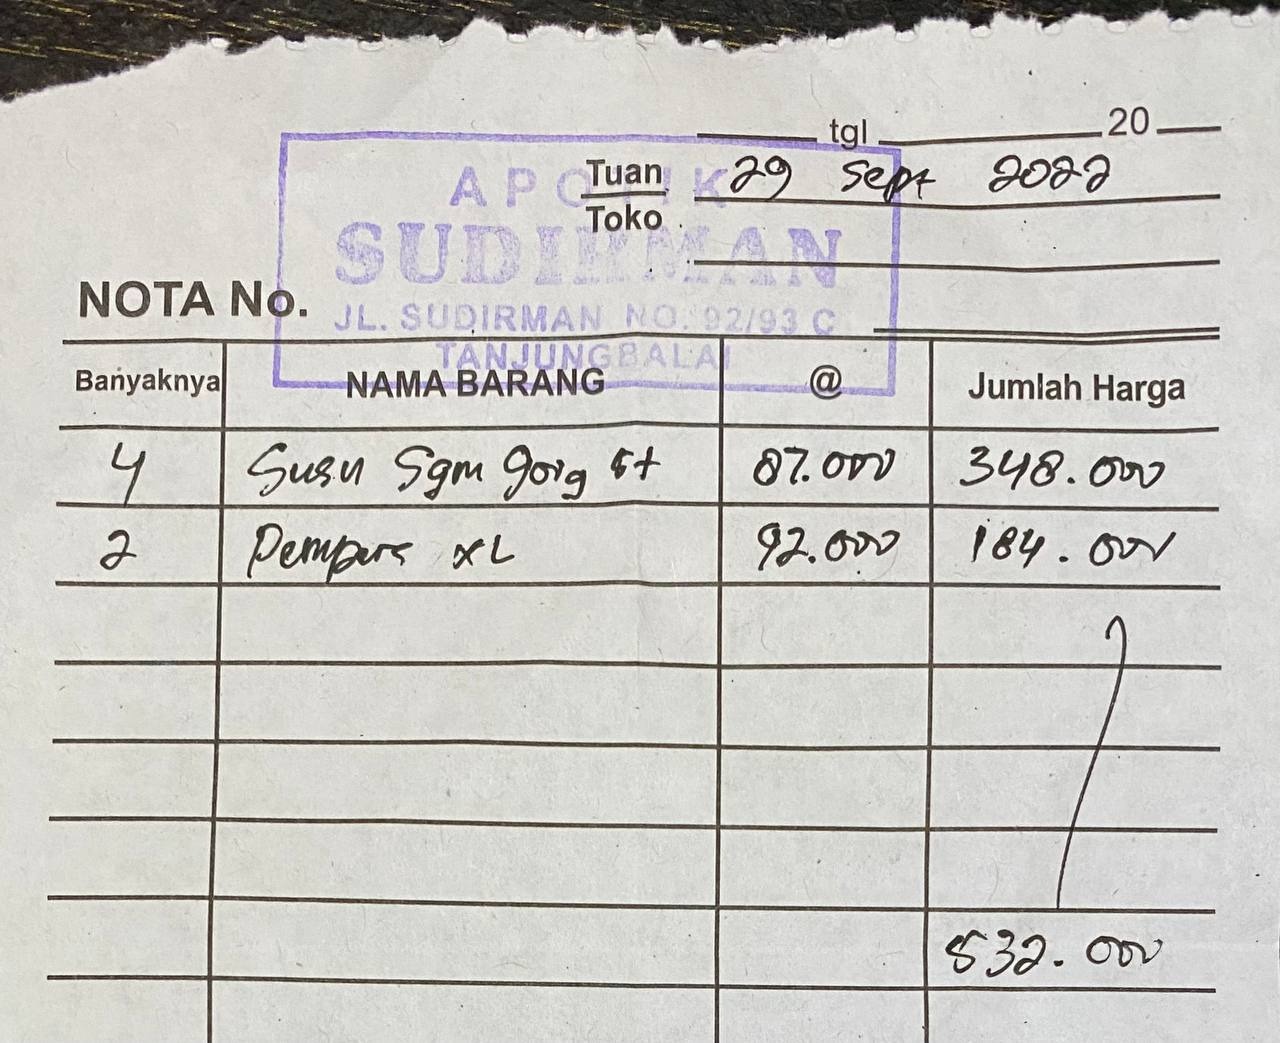 tgl 20
Tuan 29 Sept 2022
Toko
APOTIK
SUDIRMAN
JL. SUDIRMAN NO. 92/93 C
TANJUNGBALAI
NOTA No.
Banyaknya NAMA BARANG @ Jumlah Harga
4 Susu Sgm 9org 5+ 87.000 348.000
2 Pempers XL 92.000 184.000
532.000